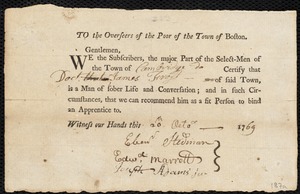 TO the Overseers of the Poor of the Town of Boston.
Gentlemen,
WE the Subscribers, the major Part of the Select-Men of
the Town of Cambridge do Certify that
Doct James of said Town,
is a Man of sober Life and Conversation; and in such Cir-
cumstances, that we can recommend him as a fit Person to bind
an Apprentice to.
Witness our Hands this 1769
Eben Stedman
Edwd Marrett
Joseph Adams